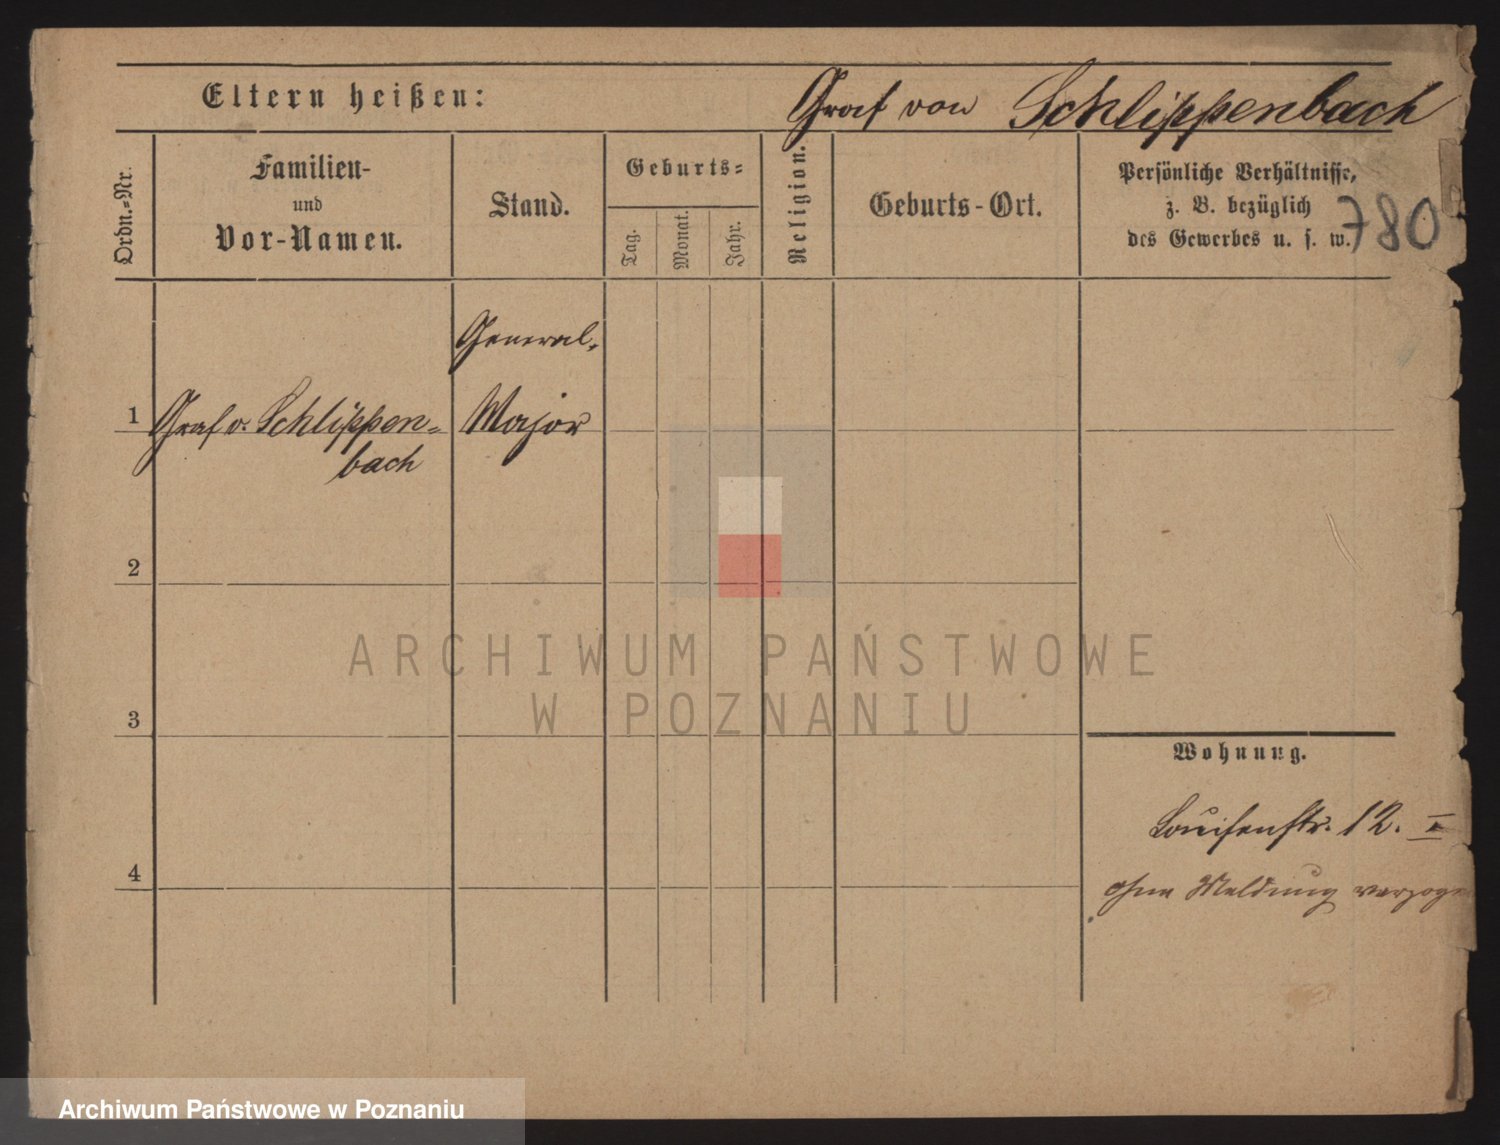 Eltern heißen:
Graf von Schlippenbach
Ordn.-Nr.
Familien-
und
Vor-Namen.
Stand.
Geburts-
Tag.
Monat.
Jahr.
Religion.
Geburts-Ort.
Persönliche Verhältnisse,
z. B. bezüglich
des Gewerbes u. s. w.
780
General-
1 Graf v. Schlippen- Major
bach
2
3
4
Wohnung.
Louisenstr. 12. I
ohne Meldung verzogen
ARCHIWUM PAŃSTWOWE
W POZNANIU
Archiwum Państwowe w Poznaniu